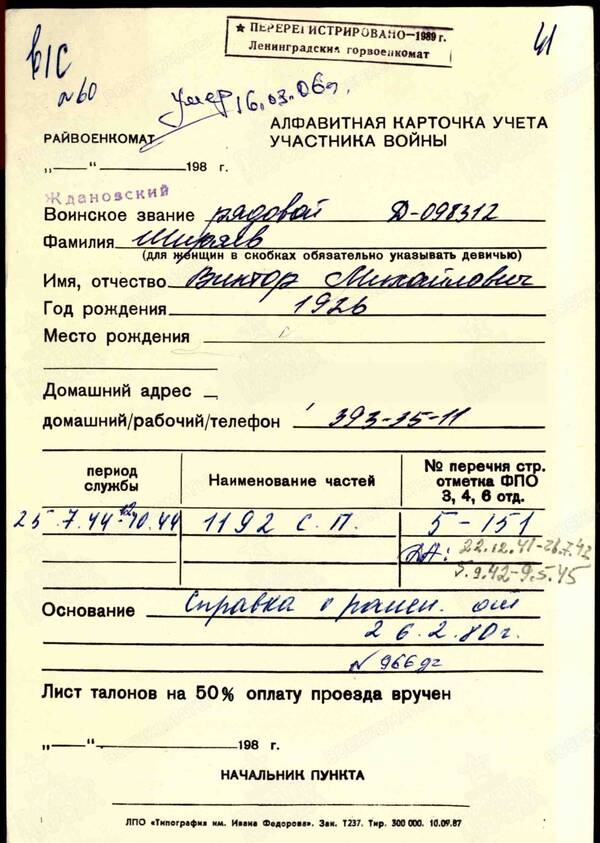 ★ ПЕРЕРЕГИСТРИРОВАНО—1989 г.
Ленинградский горвоенкомат
41
в/с
№60
умер 16.03.06г.
РАЙВОЕНКОМАТ
АЛФАВИТНАЯ КАРТОЧКА УЧЕТА
УЧАСТНИКА ВОЙНЫ
„——“————198 г.
Ждановский
Воинское звание рядовой Д-098312
Фамилия Ширяев
(для женщин в скобках обязательно указывать девичью)
Имя, отчество Виктор Михайлович
Год рождения 1926
Место рождения
Домашний адрес
домашний/рабочий/телефон 393-35-11
период службы
Наименование частей
№ перечня стр. отметка ФПО 3, 4, 6 отд.
25.7.44-12.10.44 1192 с.п. 5-151
ДА: 22.12.41-26.7.42
5.9.42-9.5.45
Основание Справка о ранен. от
26.2.80г.
№966дг
Лист талонов на 50% оплату проезда вручен
„——“————198 г.
НАЧАЛЬНИК ПУНКТА
ЛПО «Типография им. Ивана Федорова». Зак. Т237. Тир. 300 000. 10.09.87